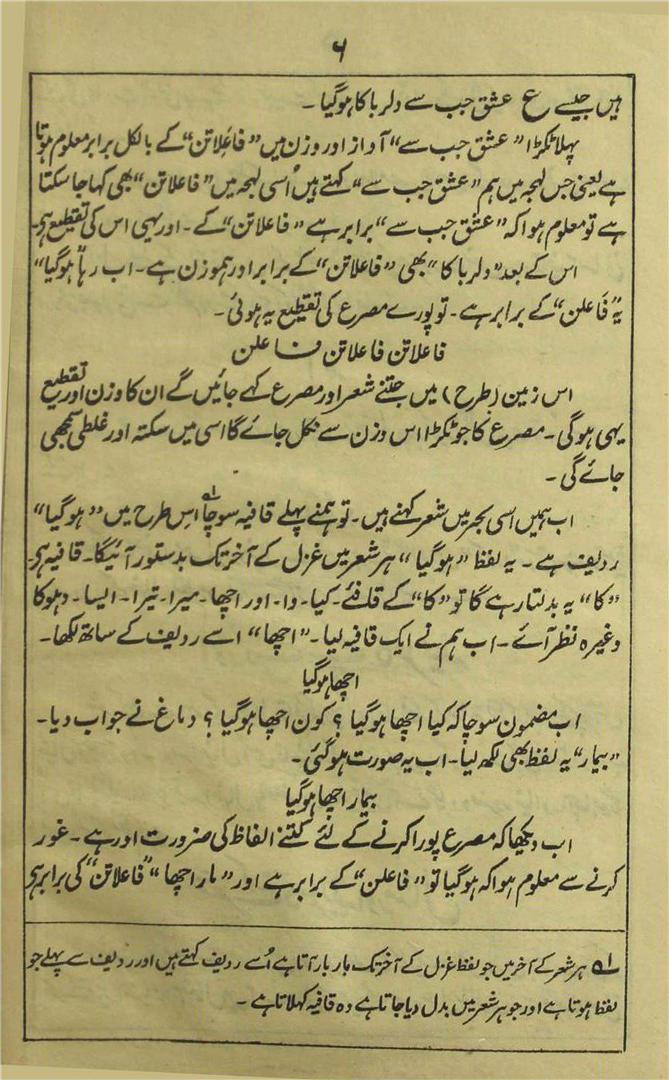 ۶
ہیں جیسے ع عشق جب سے دلربا کا ہوگیا ۔
پہلا ٹکڑا ”عشق جب سے“ آواز اور وزن میں ”فاعلاتن“ کے بالکل برابر معلوم ہوتا
ہے یعنی جس لہجہ میں ہم ”عشق جب سے“ کہتے ہیں اُسی لہجہ میں ”فاعلاتن“ بھی کہا جا سکتا
ہے تو معلوم ہوا کہ ”عشق جب سے“ برابر ہے ”فاعلاتن“ کے ۔ اور یہی اس کی تقطیع ہی۔
اس کے بعد ”دلربا کا“ بھی ”فاعلاتن“ کے برابر اور ہموزن ہے ۔ اب رہا ”ہوگیا“
یہ ”فاعلن“ کے برابر ہے ۔ تو پورے مصرع کی تقطیع یہ ہوئی ۔
فاعلاتن فاعلاتن فاعلن
اس زمین (طرح) میں جتنے شعر اور مصرع کہے جائیں گے ان کا وزن اور تقطیع
یہی ہوگی ۔ مصرع کا جو ٹکڑا اس وزن سے نکل جائے گا اسی میں سکتہ اور غلطی سمجھی
جائے گی ۔
اب ہمیں اسی بحر میں شعر کہنے ہیں ۔ تو ہمنے پہلے قافیہ سوچا ۱؎ اس طرح میں ”ہوگیا“
ردیف ہے ۔ یہ لفظ ”ہوگیا“ ہر شعر میں غزل کے آخر تک بدستور آئیگا ۔ قافیہ ہی
”کا“ یہ بدلتا رہے گا تو ”کا“ کے قافئے ۔ کیا ۔ وا ۔ اور اچھا ۔ میرا ۔ تیرا ۔ ایسا ۔ دہوکا
وغیرہ نظر آئے ۔ اب ہم نے ایک قافیہ لیا ۔ ”اچھا“ اسے ردیف کے ساتھ لکھا ۔
اچھا ہوگیا
اب مضمون سوچا کہ کیا اچھا ہوگیا ؟ کون اچھا ہوگیا ؟ دماغ نے جواب دیا ۔
”بیمار“ یہ لفظ بھی لکھ لیا ۔ اب یہ صورت ہوگئی ۔
بیمار اچھا ہوگیا
اب دیکھا کہ مصرع پورا کرنے کے لئے کتنے الفاظ کی ضرورت اور ہے ۔ غور
کرنے سے معلوم ہوا کہ ہوگیا تو ”فاعلن“ کے برابر ہے اور ”مار اچھا“ ”فاعلاتن“ کی برابر ہی
۱؎ ہر شعر کے آخر میں جو لفظ غزل کے آخر تک بار بار آتا ہے اُسے ردیف کہتے ہیں اور ردیف سے پہلے جو
لفظ ہوتا ہے اور جو ہر شعر میں بدل دیا جاتا ہے وہ قافیہ کہلاتا ہے ۔